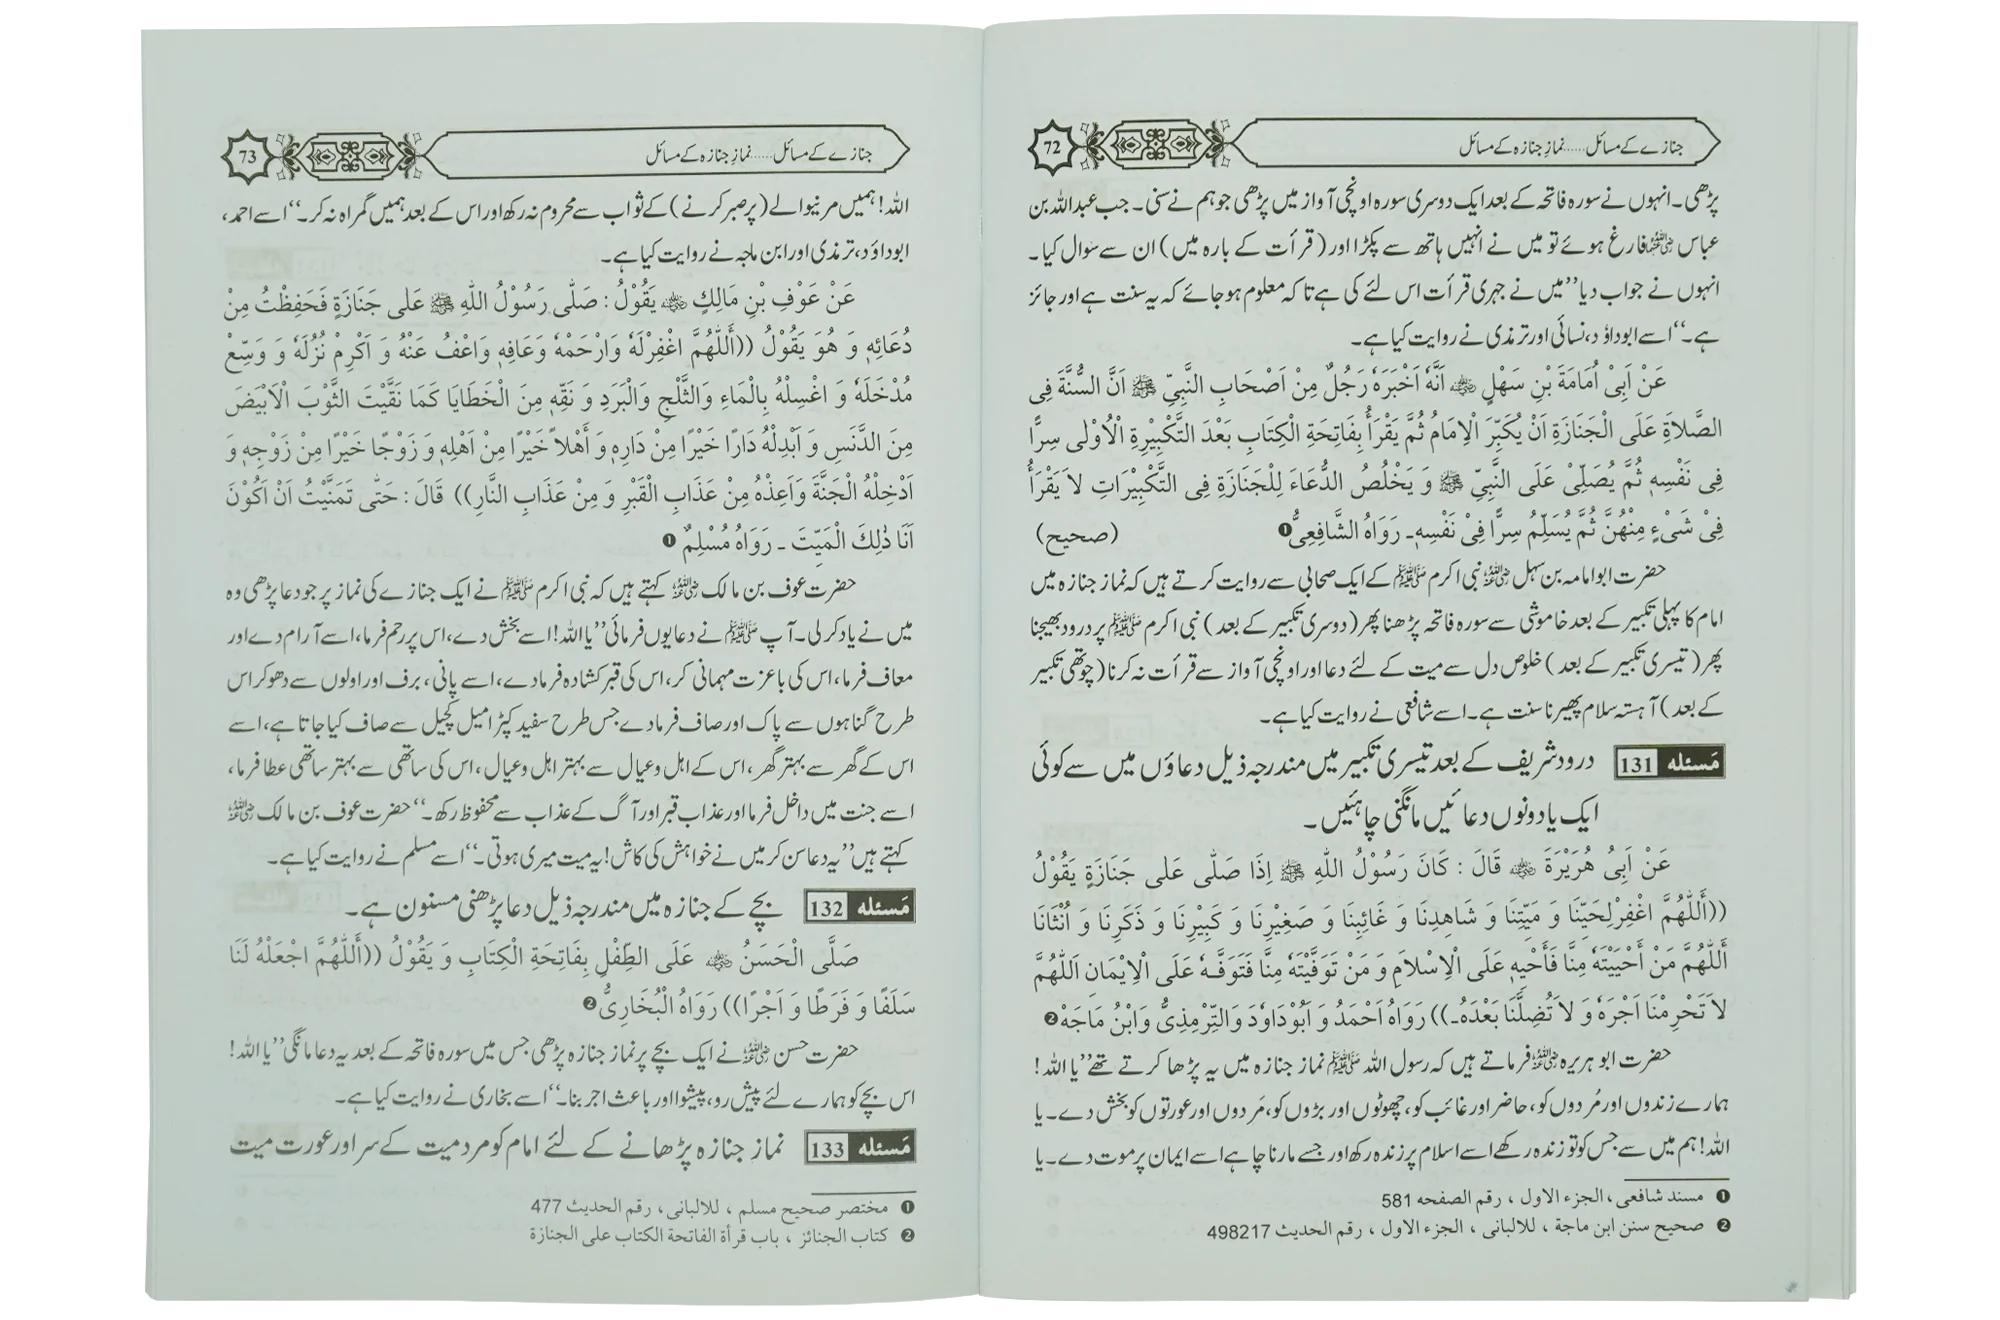 جنازے کے مسائل.....نمازِ جنازہ کے مسائل
72
پڑھی۔ انہوں نے سورہ فاتحہ کے بعد ایک دوسری سورہ اونچی آواز میں پڑھی جو ہم نے سنی۔ جب عبداللہ بن
عباس رضی اللہ عنہما فارغ ہوئے تو میں نے انہیں ہاتھ سے پکڑا اور (قرأت کے بارہ میں) ان سے سوال کیا۔
انہوں نے جواب دیا ’’میں نے جہری قرأت اس لئے کی ہے تاکہ معلوم ہو جائے کہ یہ سنت ہے اور جائز
ہے۔‘‘ اسے ابوداؤد، نسائی اور ترمذی نے روایت کیا ہے۔
عَنْ اَبِیْ اُمَامَةَ بْنِ سَهْلٍ ؓ اَنَّهُ اَخْبَرَهُ رَجُلٌ مِنْ اَصْحَابِ النَّبِیِّ ﷺ اَنَّ السُّنَّةَ فِی
الصَّلاَةِ عَلَی الْجَنَازَةِ اَنْ یُکَبِّرَ الْاِمَامُ ثُمَّ یَقْرَأُ بِفَاتِحَةِ الْکِتَابِ بَعْدَ التَّکْبِیْرَةِ الْاُوْلٰی سِرًّا
فِی نَفْسِهٖ ثُمَّ یُصَلِّیْ عَلَی النَّبِیِّ ﷺ وَ یَخْلُصُ الدُّعَاءَ لِلْجَنَازَةِ فِی التَّکْبِیْرَاتِ لاَ یَقْرَأُ
فِیْ شَیْءٍ مِنْهُنَّ ثُمَّ یُسَلِّمُ سِرًّا فِیْ نَفْسِهٖ۔ رَوَاهُ الشَّافِعِیُّ ❶ (صحیح)
حضرت ابو امامہ بن سہل ؓ نبی اکرم ﷺ کے ایک صحابی سے روایت کرتے ہیں کہ نماز جنازہ میں
امام کا پہلی تکبیر کے بعد خاموشی سے سورہ فاتحہ پڑھنا پھر (دوسری تکبیر کے بعد) نبی اکرم ﷺ پر درود بھیجنا
پھر (تیسری تکبیر کے بعد) خلوص دل سے میت کے لئے دعا اور اونچی آواز سے قرأت نہ کرنا (چوتھی تکبیر
کے بعد) آہستہ سلام پھیرنا سنت ہے۔ اسے شافعی نے روایت کیا ہے۔
مَسئله 131 درود شریف کے بعد تیسری تکبیر میں مندرجہ ذیل دعاؤں میں سے کوئی
ایک یا دونوں دعائیں مانگنی چاہئیں۔
عَنْ اَبِیُ هُرَیْرَةَ ؓ قَالَ : کَانَ رَسُوْلُ اللهِ ﷺ اِذَا صَلّٰی عَلٰی جَنَازَةٍ یَقُوْلُ
((أَللّٰهُمَّ اغْفِرْلِحَیِّنَا وَ مَیِّتِنَا وَ شَاهِدِنَا وَ غَائِبِنَا وَ صَغِیْرِنَا وَ کَبِیْرِنَا وَ ذَکَرِنَا وَ اُنْثَانَا
أَللّٰهُمَّ مَنْ أَحْیَیْتَهُ مِنَّا فَأَحْیِهٖ عَلَی الْاِسْلاَمِ وَ مَنْ تَوَفَّیْتَهُ مِنَّا فَتَوَفَّهُ عَلَی الْاِیْمَانِ اَللّٰهُمَّ
لاَ تَحْرِمْنَا اَجْرَهُ وَ لاَ تُضِلَّنَا بَعْدَهُ۔)) رَوَاهُ اَحْمَدُ وَ اَبُوْدَاوٗدَ وَالتِّرْمِذِیُّ وَابْنُ مَاجَهْ ❷
حضرت ابو ہریرہ ؓ فرماتے ہیں کہ رسول اللہ ﷺ نماز جنازہ میں یہ پڑھا کرتے تھے ’’یا اللہ!
ہمارے زندوں اور مُردوں کو، حاضر اور غائب کو، چھوٹوں اور بڑوں کو، مَردوں اور عورتوں کو بخش دے۔ یا
اللہ! ہم میں سے جس کو تو زندہ رکھے اسے اسلام پر زندہ رکھ اور جسے مارنا چاہے اسے ایمان پر موت دے۔ یا
❶ مسند شافعی، الجزء الاول ، رقم الصفحه 581
❷ صحیح سنن ابن ماجة ، للالبانی ، الجزء الاول ، رقم الحدیث 498217
جنازے کے مسائل.....نمازِ جنازہ کے مسائل
73
اللہ! ہمیں مرنیوالے (پر صبر کرنے) کے ثواب سے محروم نہ رکھ اور اس کے بعد ہمیں گمراہ نہ کر۔‘‘ اسے احمد،
ابوداؤد، ترمذی اور ابن ماجہ نے روایت کیا ہے۔
عَنْ عَوْفِ بْنِ مَالِكٍ ؓ یَقُوْلُ : صَلّٰی رَسُوْلُ اللهِ ﷺ عَلٰی جَنَازَةٍ فَحَفِظْتُ مِنْ
دُعَائِهٖ وَ هُوَ یَقُوْلُ ((أَللّٰهُمَّ اغْفِرْلَهُ وَارْحَمْهُ وَعَافِهٖ وَاعْفُ عَنْهُ وَ اَکْرِمْ نُزُلَهُ وَ وَسِّعْ
مُدْخَلَهُ وَ اغْسِلْهُ بِالْمَاءِ وَالثَّلْجِ وَالْبَرَدِ وَ نَقِّهٖ مِنَ الْخَطَایَا کَمَا نَقَّیْتَ الثَّوْبَ الْاَبْیَضَ
مِنَ الدَّنَسِ وَ اَبْدِلْهُ دَارًا خَیْرًا مِنْ دَارِهٖ وَ أَهْلاً خَیْرًا مِنْ اَهْلِهٖ وَ زَوْجًا خَیْرًا مِنْ زَوْجِهٖ وَ
اَدْخِلْهُ الْجَنَّةَ وَاَعِذْهُ مِنْ عَذَابِ الْقَبْرِ وَ مِنْ عَذَابِ النَّارِ)) قَالَ : حَتّٰی تَمَنَّیْتُ اَنْ اَکُوْنَ
اَنَا ذٰلِكَ الْمَیِّتَ ۔ رَوَاهُ مُسْلِمٌ ❶
حضرت عوف بن مالک ؓ کہتے ہیں کہ نبی اکرم ﷺ نے ایک جنازے کی نماز پر جو دعا پڑھی وہ
میں نے یاد کر لی۔ آپ ﷺ نے دعا یوں فرمائی ’’یا اللہ! اسے بخش دے، اس پر رحم فرما، اسے آرام دے اور
معاف فرما، اس کی باعزت مہمانی کر، اس کی قبر کشادہ فرما دے، اسے پانی، برف اور اولوں سے دھو کر اس
طرح گناہوں سے پاک اور صاف فرما دے جس طرح سفید کپڑا میل کچیل سے صاف کیا جاتا ہے، اسے
اس کے گھر سے بہتر گھر، اس کے اہل و عیال سے بہتر اہل و عیال، اس کی ساتھی سے بہتر ساتھی عطا فرما،
اسے جنت میں داخل فرما اور عذاب قبر اور آگ کے عذاب سے محفوظ رکھ۔‘‘ حضرت عوف بن مالک ؓ
کہتے ہیں ’’یہ دعا سن کر میں نے خواہش کی کاش! یہ میت میری ہوتی۔‘‘ اسے مسلم نے روایت کیا ہے۔
مَسئله 132 بچے کے جنازہ میں مندرجہ ذیل دعا پڑھنی مسنون ہے۔
صَلَّی الْحَسَنُ ؓ عَلَی الطِّفْلِ بِفَاتِحَةِ الْکِتَابِ وَ یَقُوْلُ ((أَللّٰهُمَّ اجْعَلْهُ لَنَا
سَلَفًا وَ فَرَطًا وَ اَجْرًا)) رَوَاهُ الْبُخَارِیُّ ❷
حضرت حسن ؓ نے ایک بچے پر نماز جنازہ پڑھی جس میں سورہ فاتحہ کے بعد یہ دعا مانگی ’’یا اللہ!
اس بچے کو ہمارے لئے پیش رو، پیشوا اور باعث اجر بنا۔‘‘ اسے بخاری نے روایت کیا ہے۔
مَسئله 133 نمازِ جنازہ پڑھانے کے لئے امام کو مرد میت کے سر اور عورت میت
❶ مختصر صحیح مسلم ، للالبانی، رقم الحدیث 477
❷ کتاب الجنائز ، باب قرأة الفاتحة الکتاب علی الجنازة